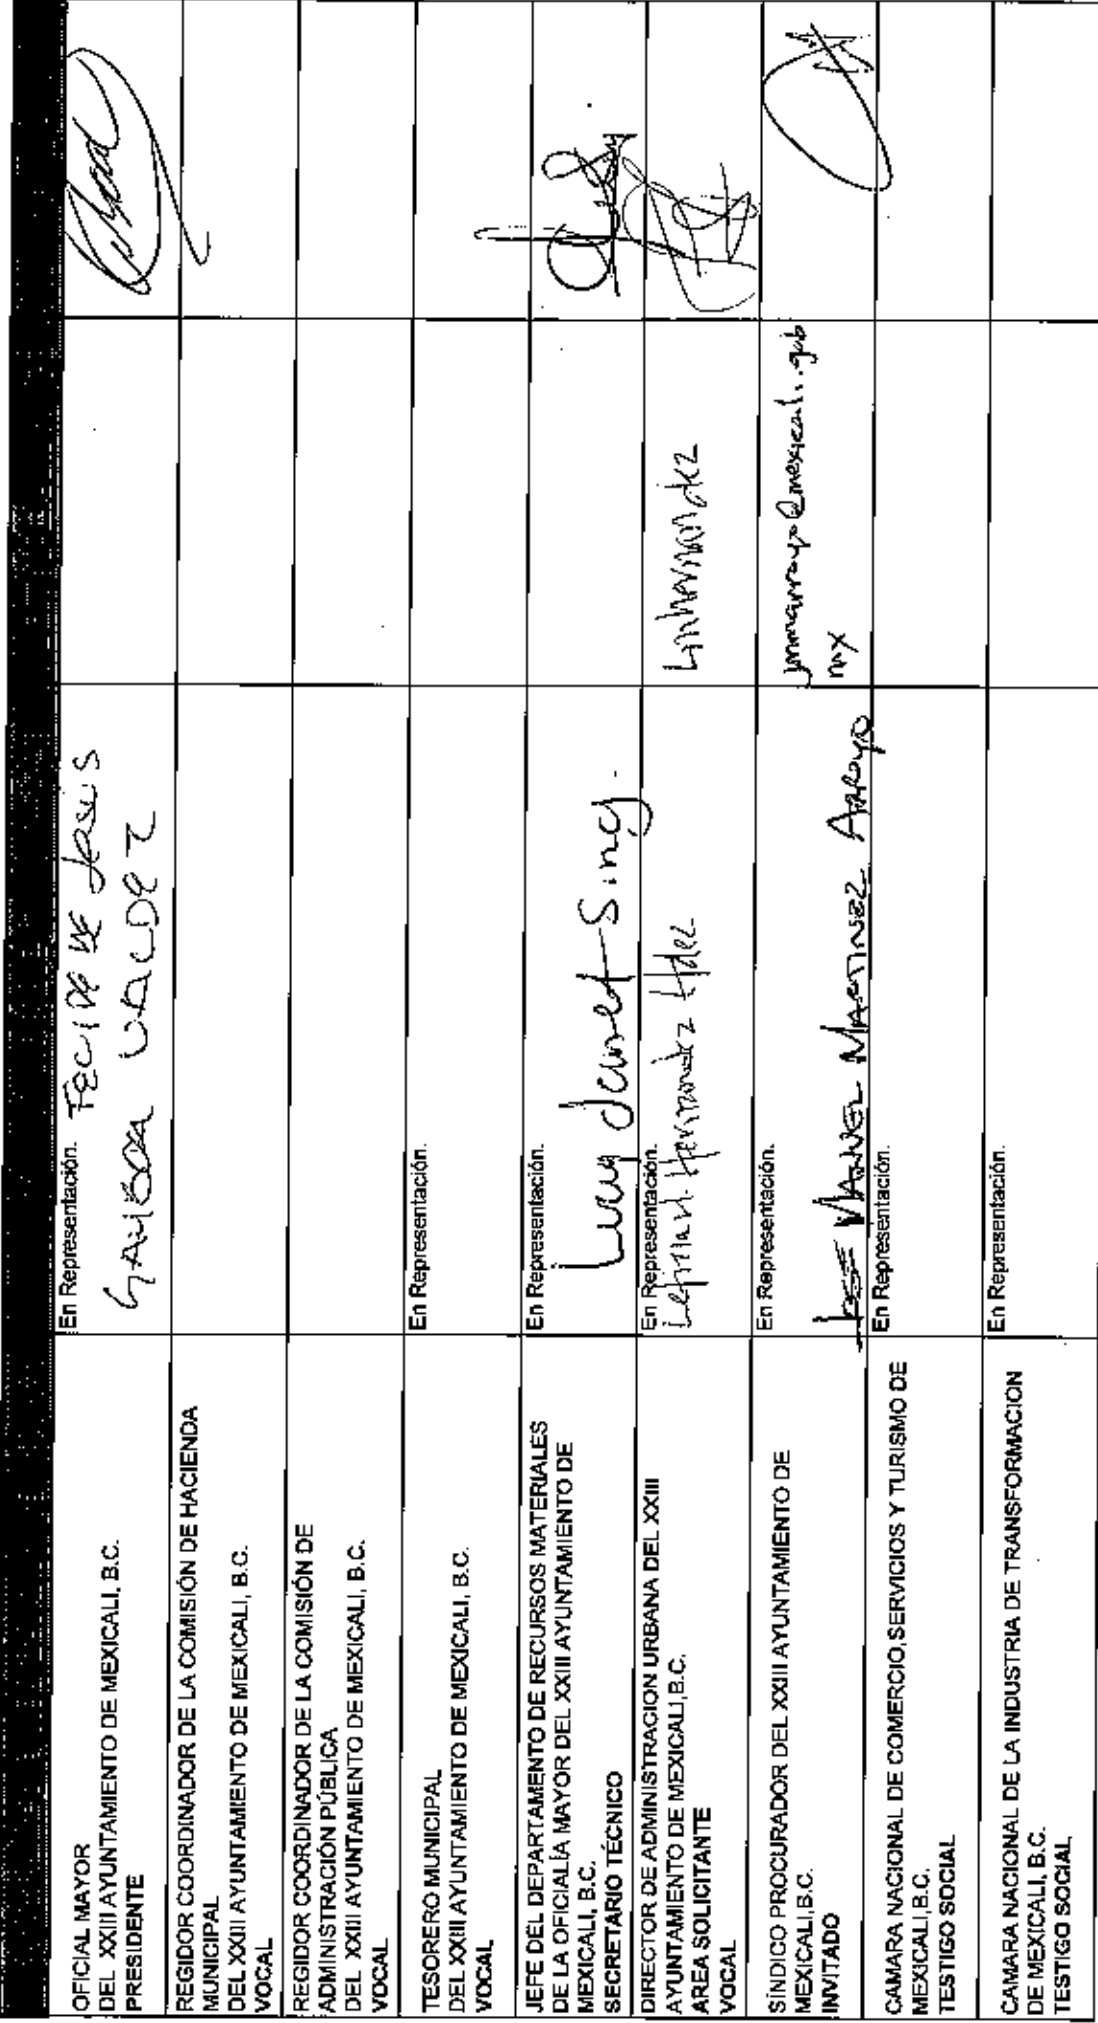 OFICIAL MAYOR
DEL XXIII AYUNTAMIENTO DE MEXICALI, B.C.
PRESIDENTE
En Representación.
DE JESUS
GAMBOA VALDEZ
REGIDOR COORDINADOR DE LA COMISIÓN DE HACIENDA
MUNICIPAL
DEL XXII AYUNTAMIENTO DE MEXICALI, B.C.
VOCAL
REGIDOR COORDINADOR DE LA COMISIÓN DE
ADMINISTRACIÓN PÚBLICA
DEL XXIII AYUNTAMIENTO DE MEXICALI, B.C.
VOCAL
TESORERO MUNICIPAL
DEL XXIII AYUNTAMIENTO DE MEXICALI, B.C.
VOCAL
En Representación.
JEFE DEL DEPARTAMENTO DE RECURSOS MATERIALES
DE LA OFICIALÍA MAYOR DEL XXIII AYUNTAMIENTO DE
MEXICALI, B.C.
SECRETARIO TÉCNICO
En Representación.
Lucy Janet Sing.
DIRECTOR DE ADMINISTRACION URBANA DEL XXIII
AYUNTAMIENTO DE MEXICALI, B.C.
AREA SOLICITANTE
VOCAL
En Representación.
Hernandez Hdez
SÍNDICO PROCURADOR DEL XXIII AYUNTAMIENTO DE
MEXICALI, B.C.
INVITADO
En Representación.
JOSE MANUEL MARTINEZ ARROYO
jmmarroyo@mexicali.gob
mx
CAMARA NACIONAL DE COMERCIO, SERVICIOS Y TURISMO DE
MEXICALI, B.C.
TESTIGO SOCIAL
En Representación.
CAMARA NACIONAL DE LA INDUSTRIA DE TRANSFORMACION
DE MEXICALI, B.C.
TESTIGO SOCIAL
En Representación.